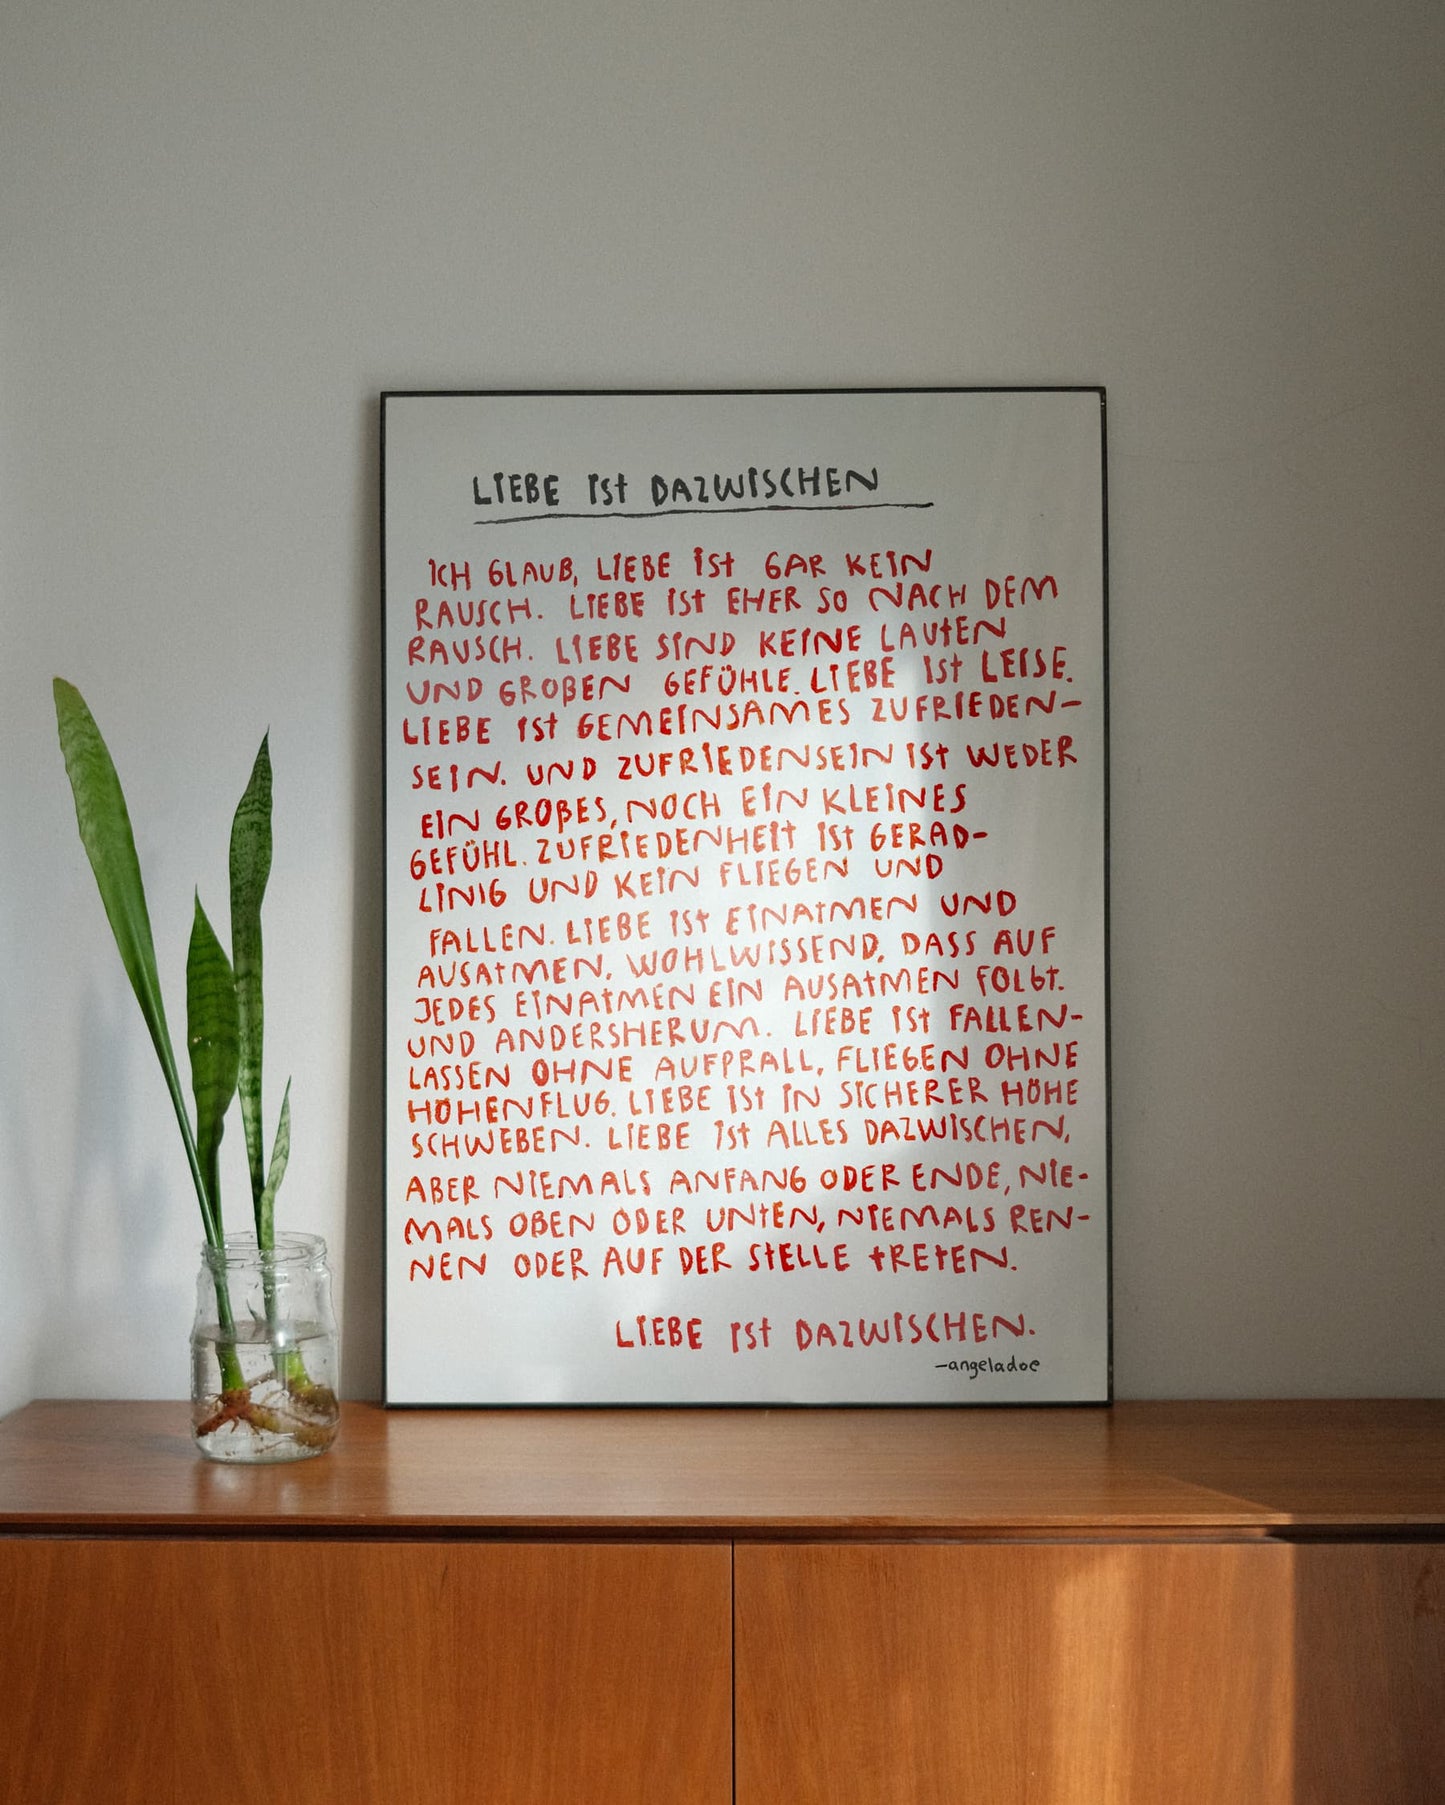 LIEBE ist DAZWISCHEN
ICH GLAUB, LIEBE ist GAR KEIN
RAUSCH. LIEBE ist EHER SO NACH DEM
RAUSCH. LIEBE SIND KEINE LAUtEN
UND GROßEN GEFÜHLE. LIEBE ist LEISE.
LIEBE ist GEMEINSAMES ZUFRIEDEN-
SEIN. UND ZUFRIEDENSEIN ist WEDER
EIN GROßES, NOCH EIN KLEINES
GEFÜHL. ZUFRIEDENHEit ist GERAD-
LINIG UND KEIN FLIEGEN UND
FALLEN. LIEBE ist EINAtMEN UND
AUSAtMEN, WOHLWISSEND, DASS AUF
JEDES EINAtMEN EIN AUSAtMEN FOLGt.
UND ANDERSHERUM. LIEBE ist FALLEN-
LASSEN OHNE AUFPRALL, FLIEGEN OHNE
HÖHENFLUG. LIEBE ist IN SICHERER HÖHE
SCHWEBEN. LIEBE ist ALLES DAZWISCHEN,
ABER NIEMALS ANFANG ODER ENDE, NIE-
MALS OBEN ODER UNtEN, NIEMALS REN-
NEN ODER AUF DER StELLE tREtEN.
LIEBE ist DAZWISCHEN.
-angeladoe